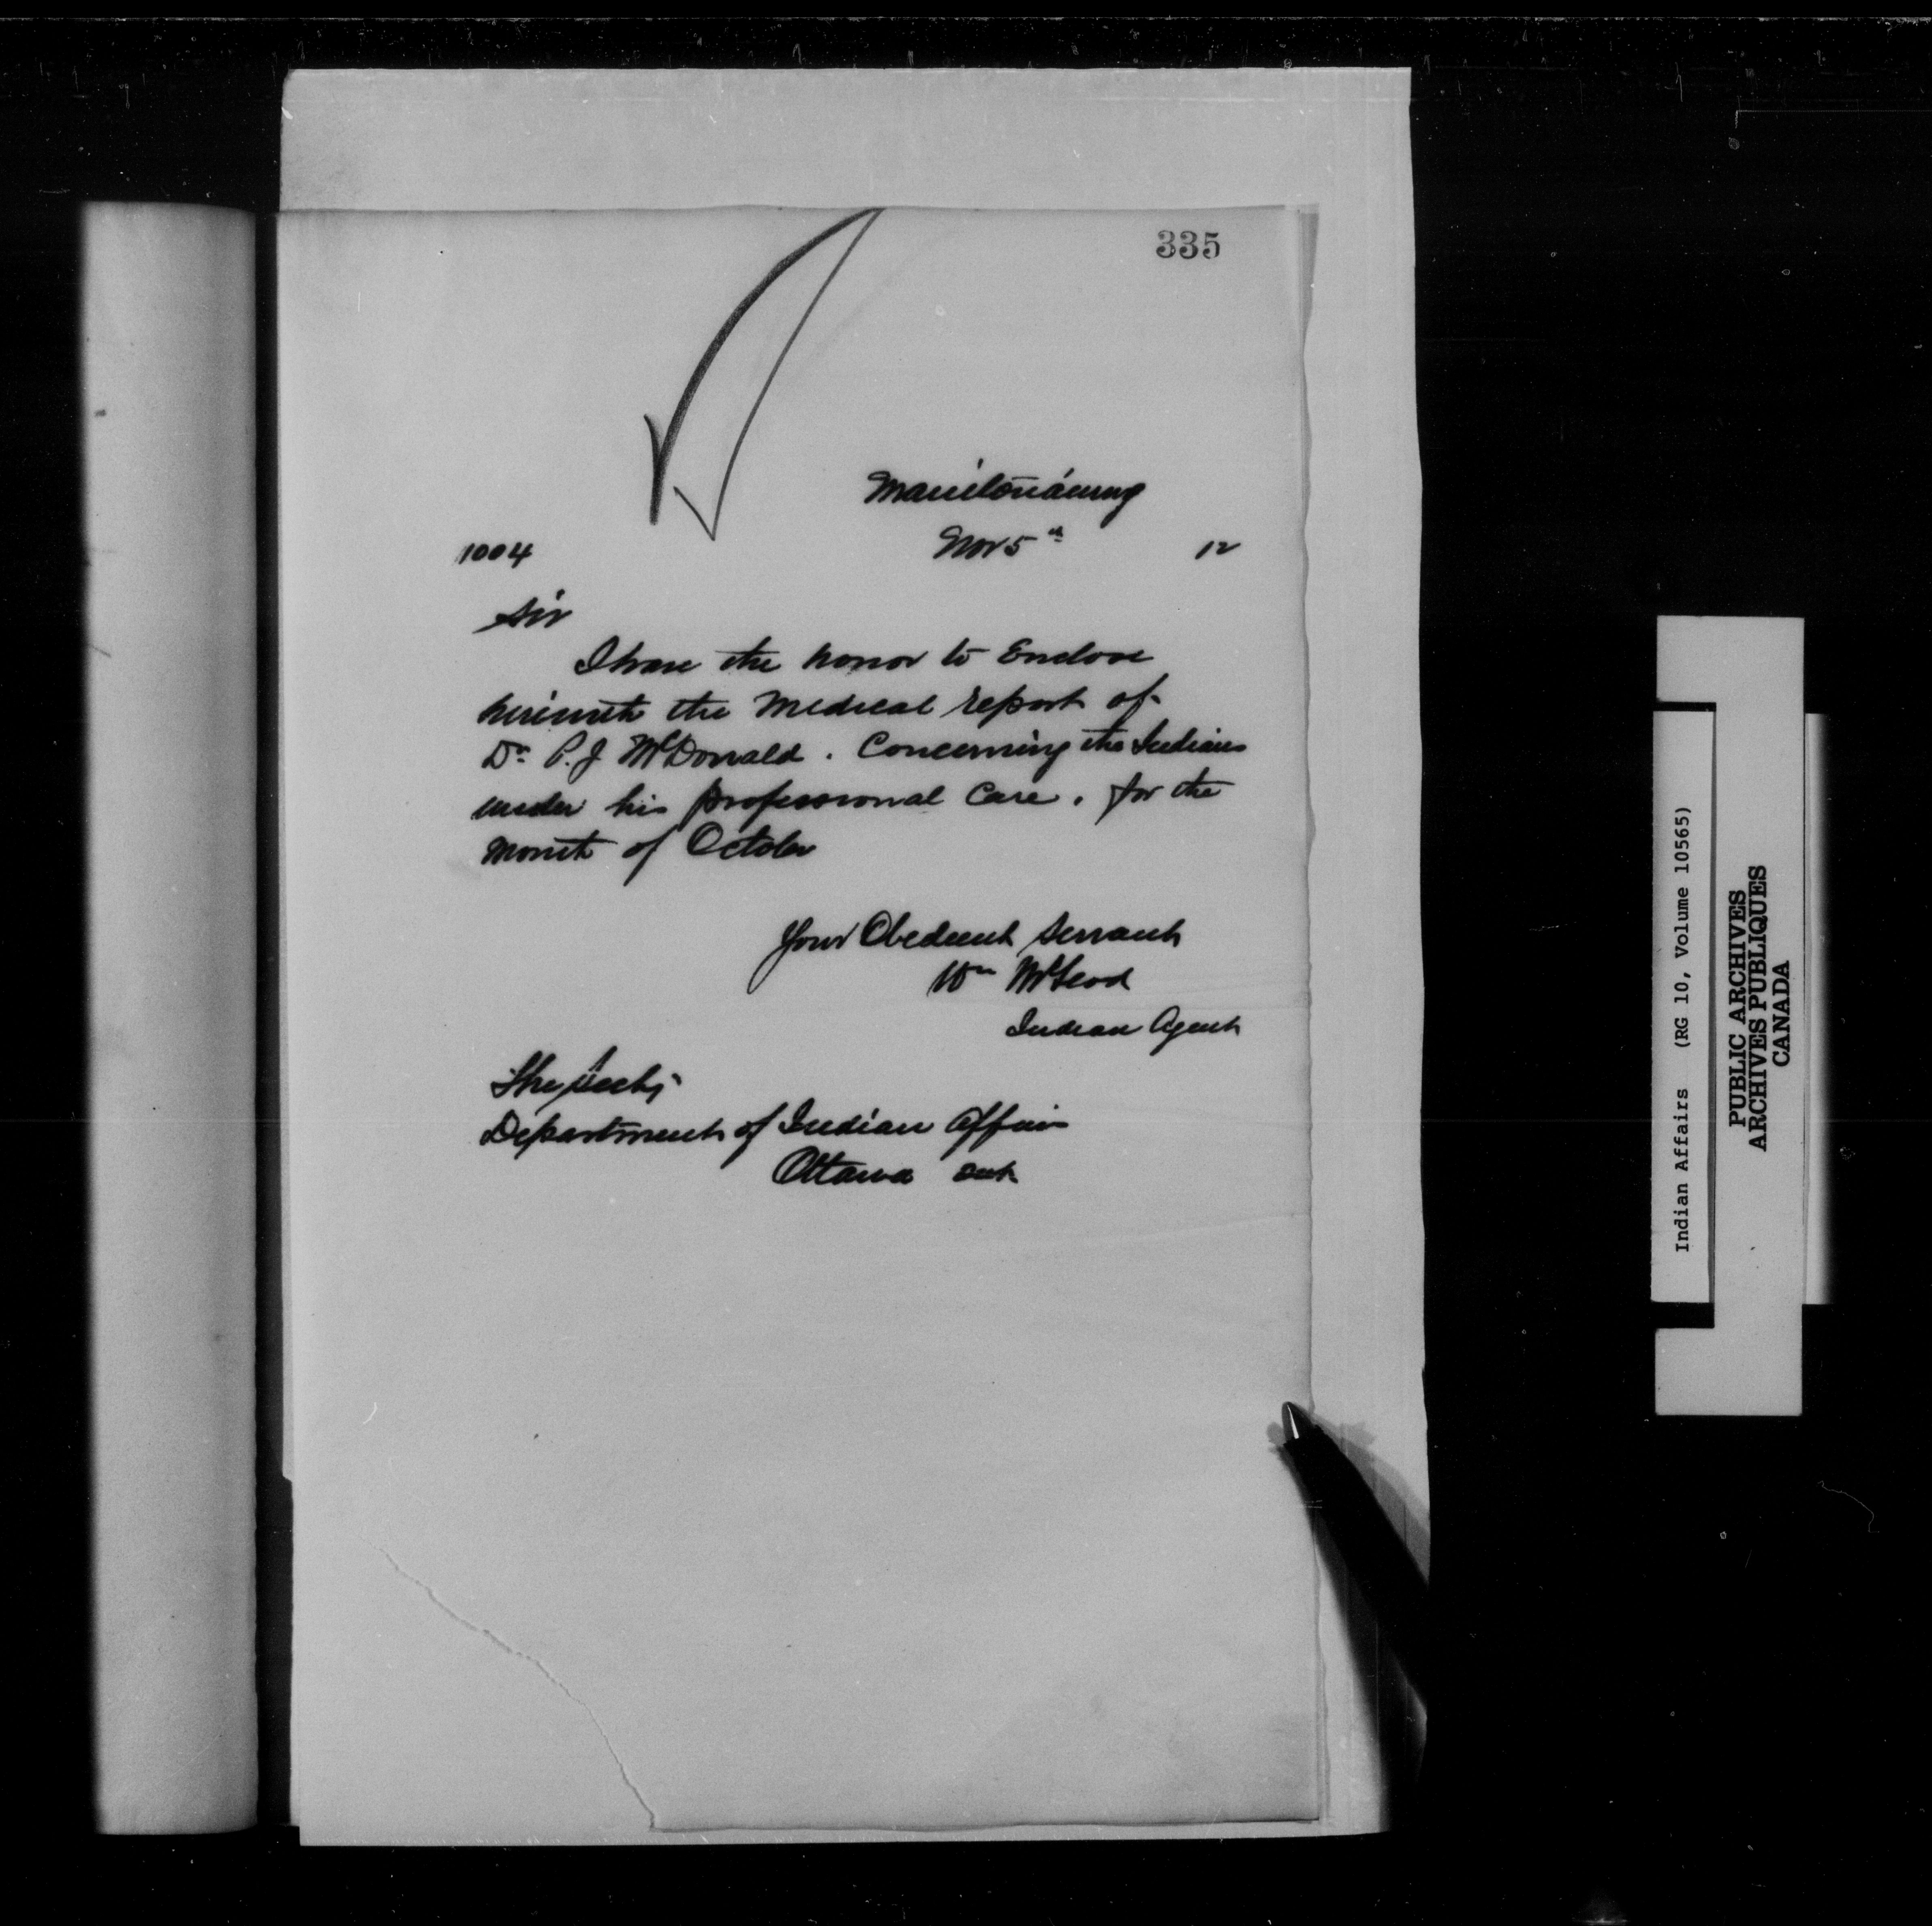 335
Manitowaning
1004 Nov 5th 12
Sir
I have the honor to Enclose
herewith the Medical report of
Dr P. J McDonald. Concerning the Indians
under his professional Care. for the
month of October
Your Obedient Servant
Wm McLeod
Indian Agent
The Secty
Department of Indian Affairs
Ottawa Ont
Indian Affairs (RG 10, Volume 10565)
PUBLIC ARCHIVES
ARCHIVES PUBLIQUES
CANADA